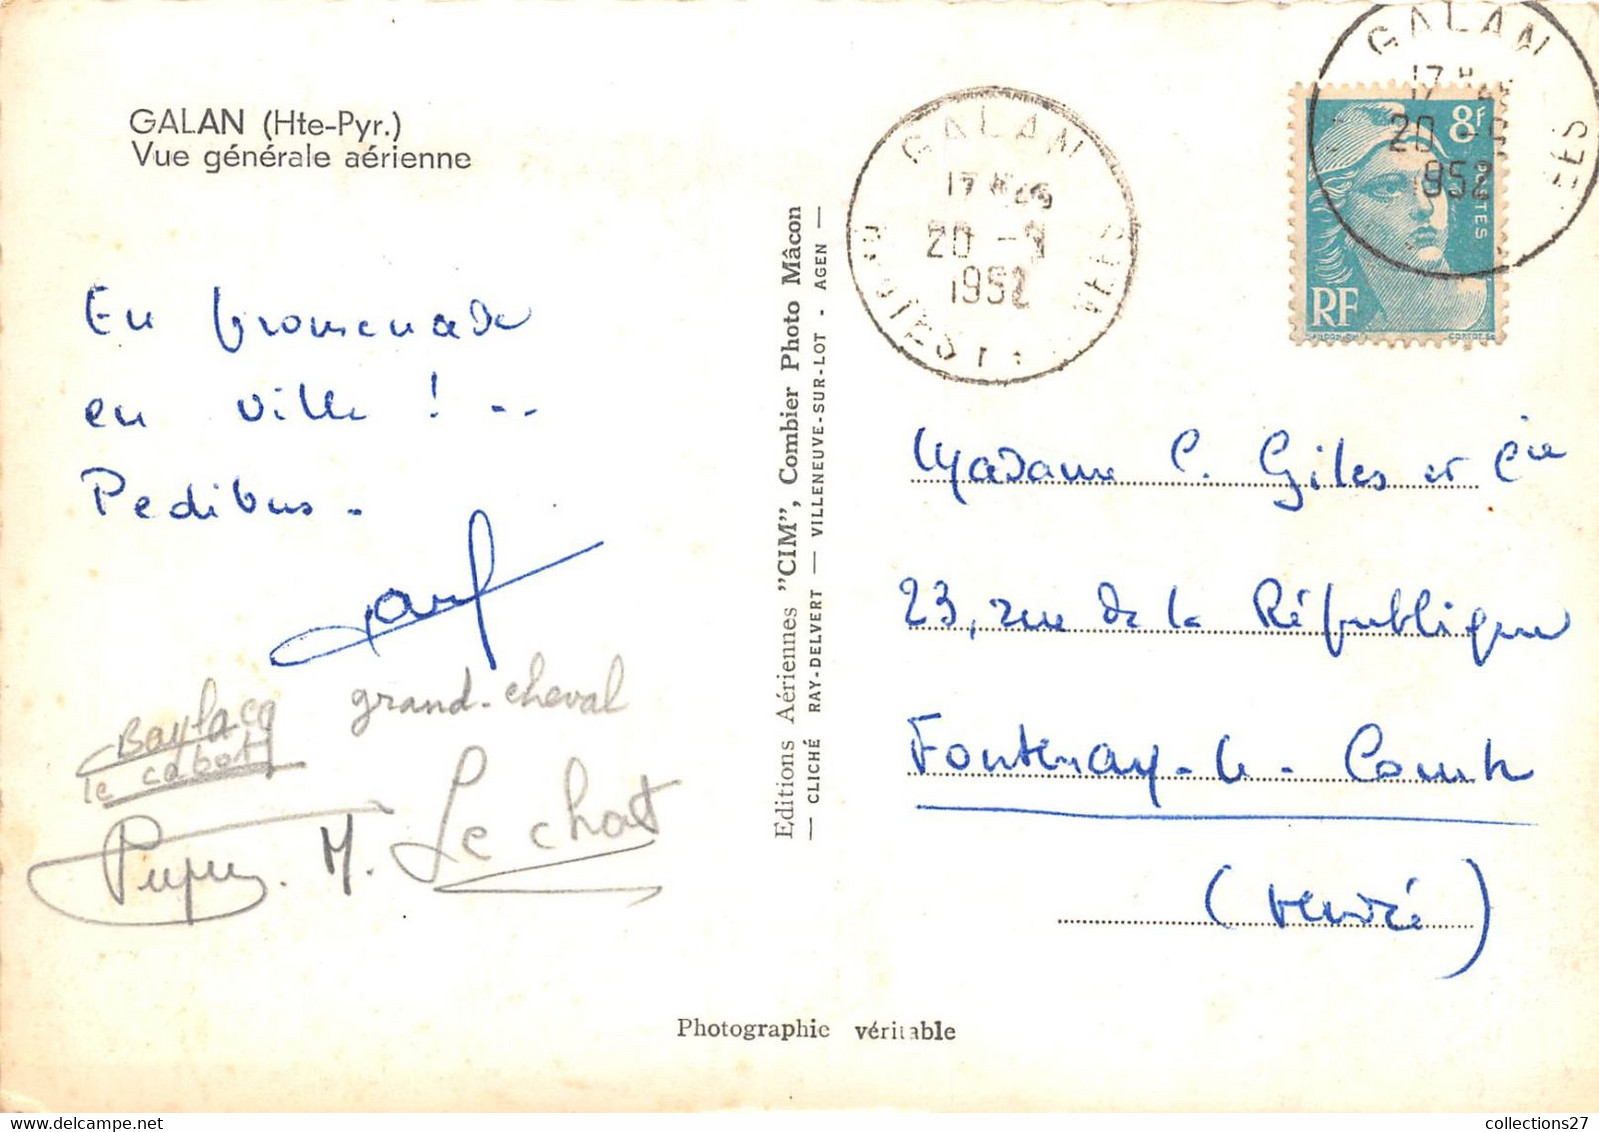 GALAN (Hte-Pyr.)
Vue générale aérienne
En promenade
en ville ! --
Pedibus.
grand-cheval
Baylacq
le cabot
Pupu. M. Le chat
Editions Aériennes "CIM", Combier Photo Mâcon
— CLICHÉ RAY-DELVERT — VILLENEUVE-SUR-LOT - AGEN —
GALAN
20 -9
1952
GALAN
20 -9
1952
8F
POSTES
RF
Madame C. Giles et Cie
23, rue de la République
Fontenay-le-Comte
(Vendée)
Photographie véritable
collections27